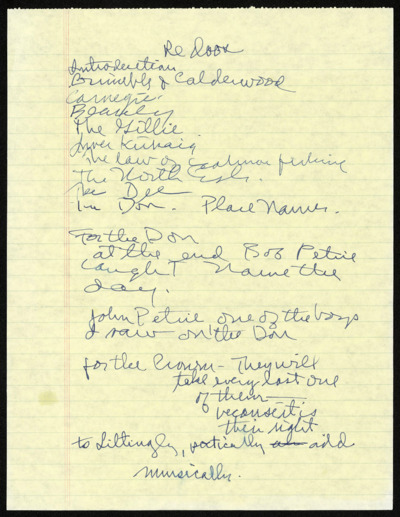 Re Book
Introduction
Brimbly & Calderwood
Carnegie.
Beauly
The Gillie
Inver Kirkaig
The law of salmon fishing
The North Esk.
The Dee
The Don. Place Names.
For the Don
at the end Bob Petrie
caught Name the
day.
John Petrie one of the boys
I saw on the Don
for the - They will
take every last one
of them —
is
their right
to liltingly, poetically add
musically.